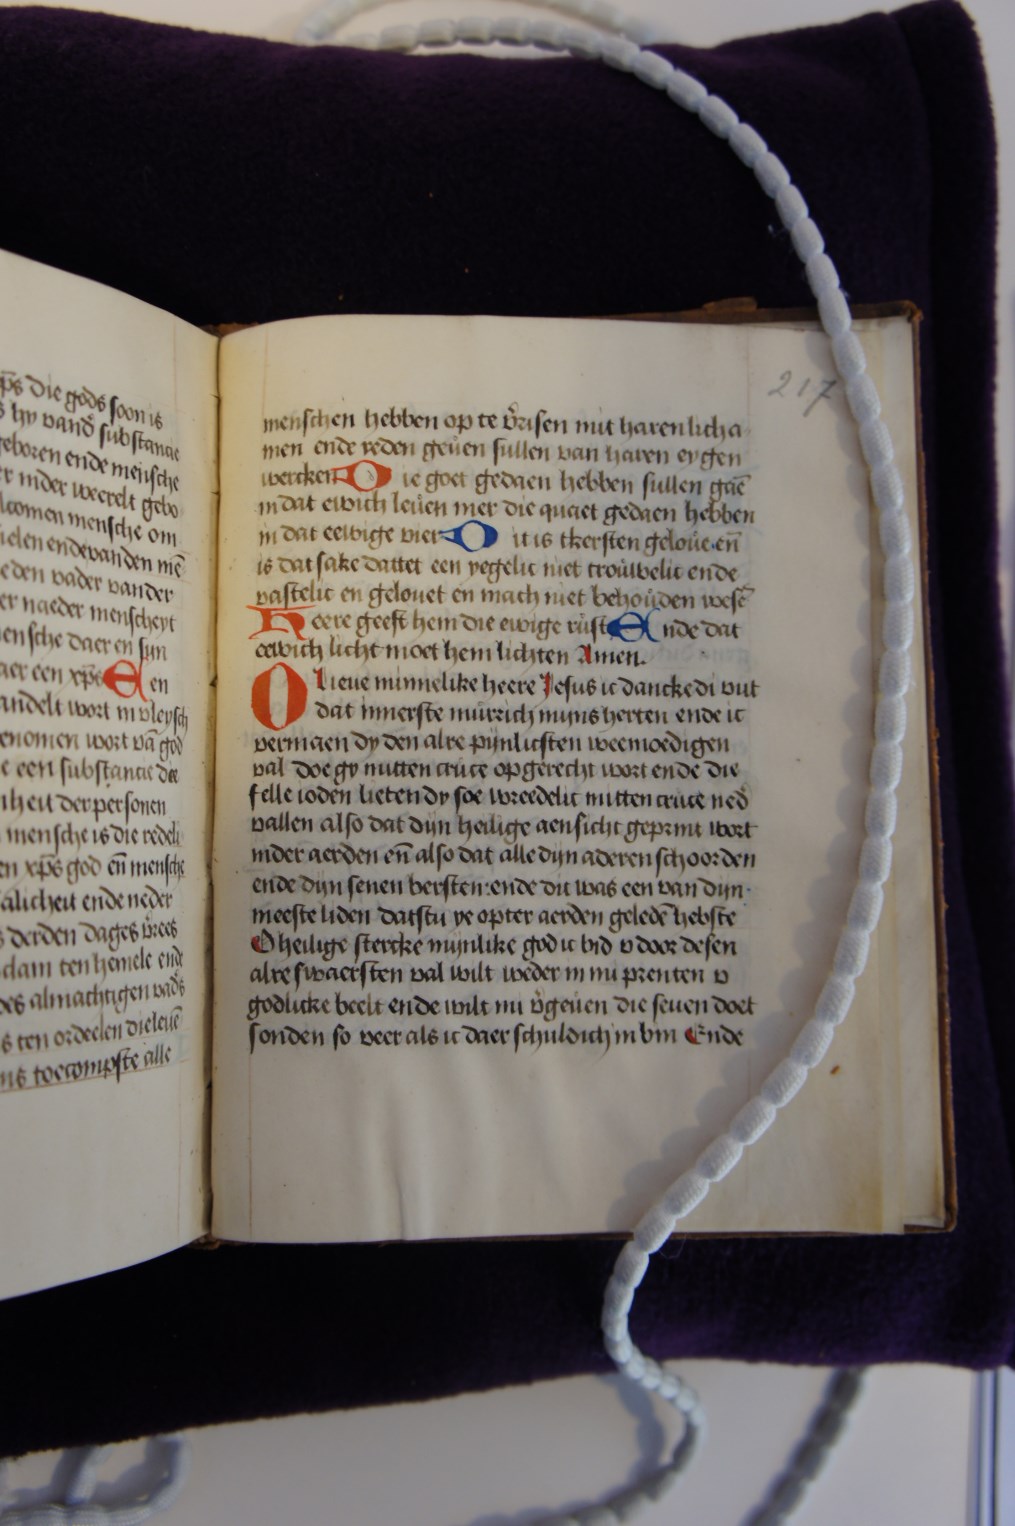 xp̄s die gods soon is
s hy vand̉ substancie
geboren ende mensche
er inder weerelt gebo
lcomen mensche om
ielen ende vanden mē
eden vader vander
er naeder menscheyt
ensche daer en syn
aer een xp̄s En
andelt wort in vleysch
enomen wort vā god
een substancie
nheit der personen
mensche is die redeli
en xp̄s god en̄ mensche
alicheit ende neder
s derden dages v̉rees
dam ten hemele ende
des almachtigen vad̉s
s ten ordeelen die levē
ns toecompste alle
217
menschen hebben op te v̉risen mit haren licha
men ende reden geven sullen van haren eygen
wercken Die goet gedaen hebben sullen gaē
in dat ewich leven mer die quaet gedaen hebben
in dat eewige vier Dit is tkersten gelove en̄
is dat sake dattet een yegelic niet trouwelic ende
vastelic en gelovet en mach niet behouden wesē
Heere geeft hem die ewige rust Ende dat
eewich licht moet hem lichten Amen.
O lieue minnelike heere Jesus ic dancke di uut
dat innerste murrich mijns herten ende ic
vermaen dy den alre pijnlicsten weemoedigen
val doe gy mitten cruce opgerecht wort ende die
felle ioden lieten dy soe wreedelic mitten cruce ned̉
vallen also dat dijn heilige aensicht geprint wort
inder aerden en̄ also dat alle dijn aderen schoorden
ende dijn senen bersten: ende dit was een van dijn
meeste liden datstu ye opter aerden geledē hebste
O heilige stercke mijnlike god ic bid v door desen
alre swaersten val wilt weder in mi prenten v
godlicke beelt ende wilt mi v̉geven die seven doet
sonden so veer als ic daer schuldich in bin Ende